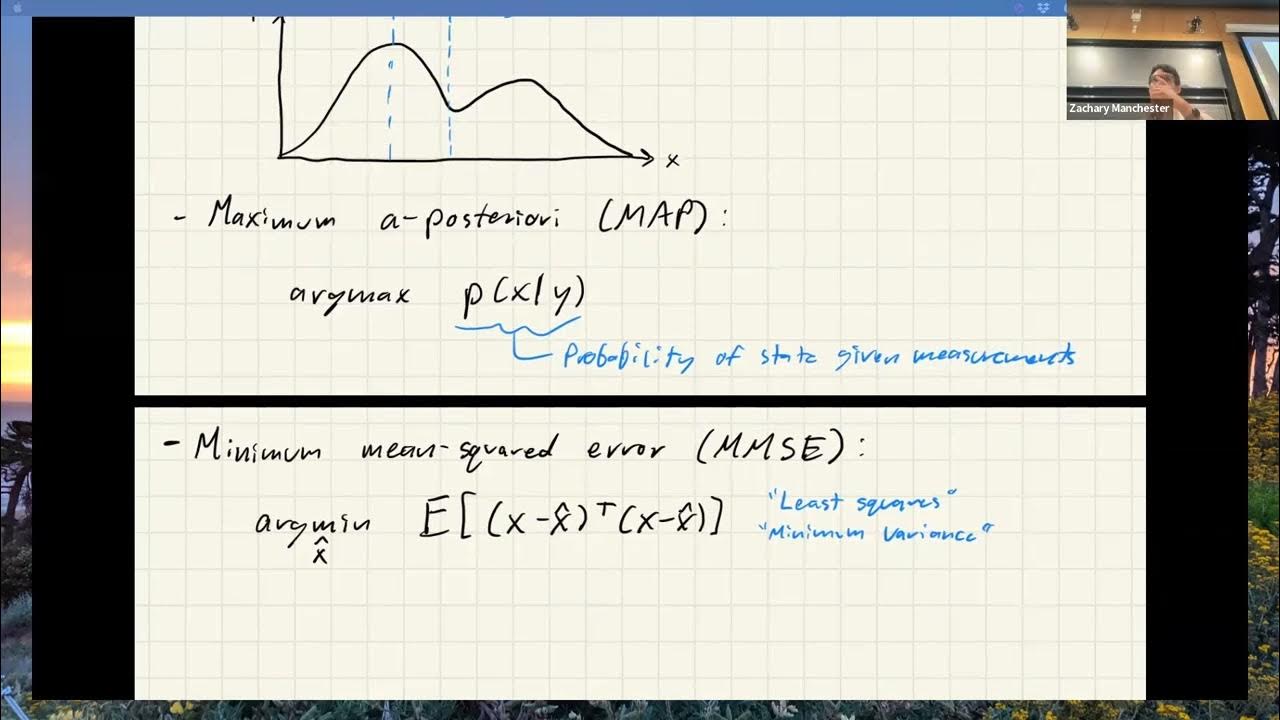 x
Zachary Manchester
- Maximum a-posteriori (MAP):
argmax p(x|y)
Probability of state given measurements
- Minimum mean-squared error (MMSE):
argmin E[(x-x̂)ᵀ(x-x̂)] "Least squares"
x̂ "Minimum variance"